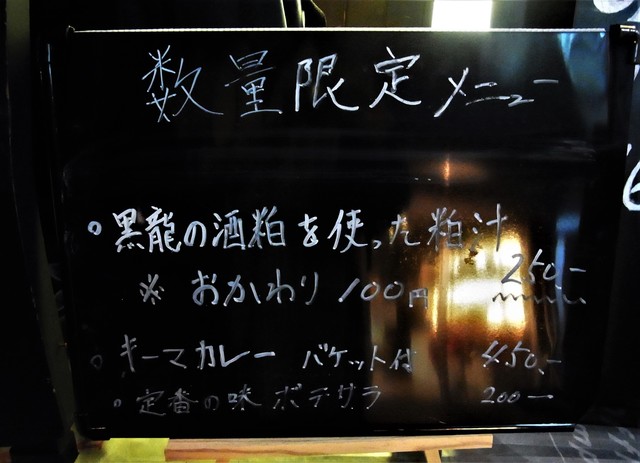 数量限定メニュー
。黒龍の酒粕を使った粕汁
250.-
※ おかわり 100円
。キーマカレー バケット付 450.-
。定番の味 ポテサラ 200-